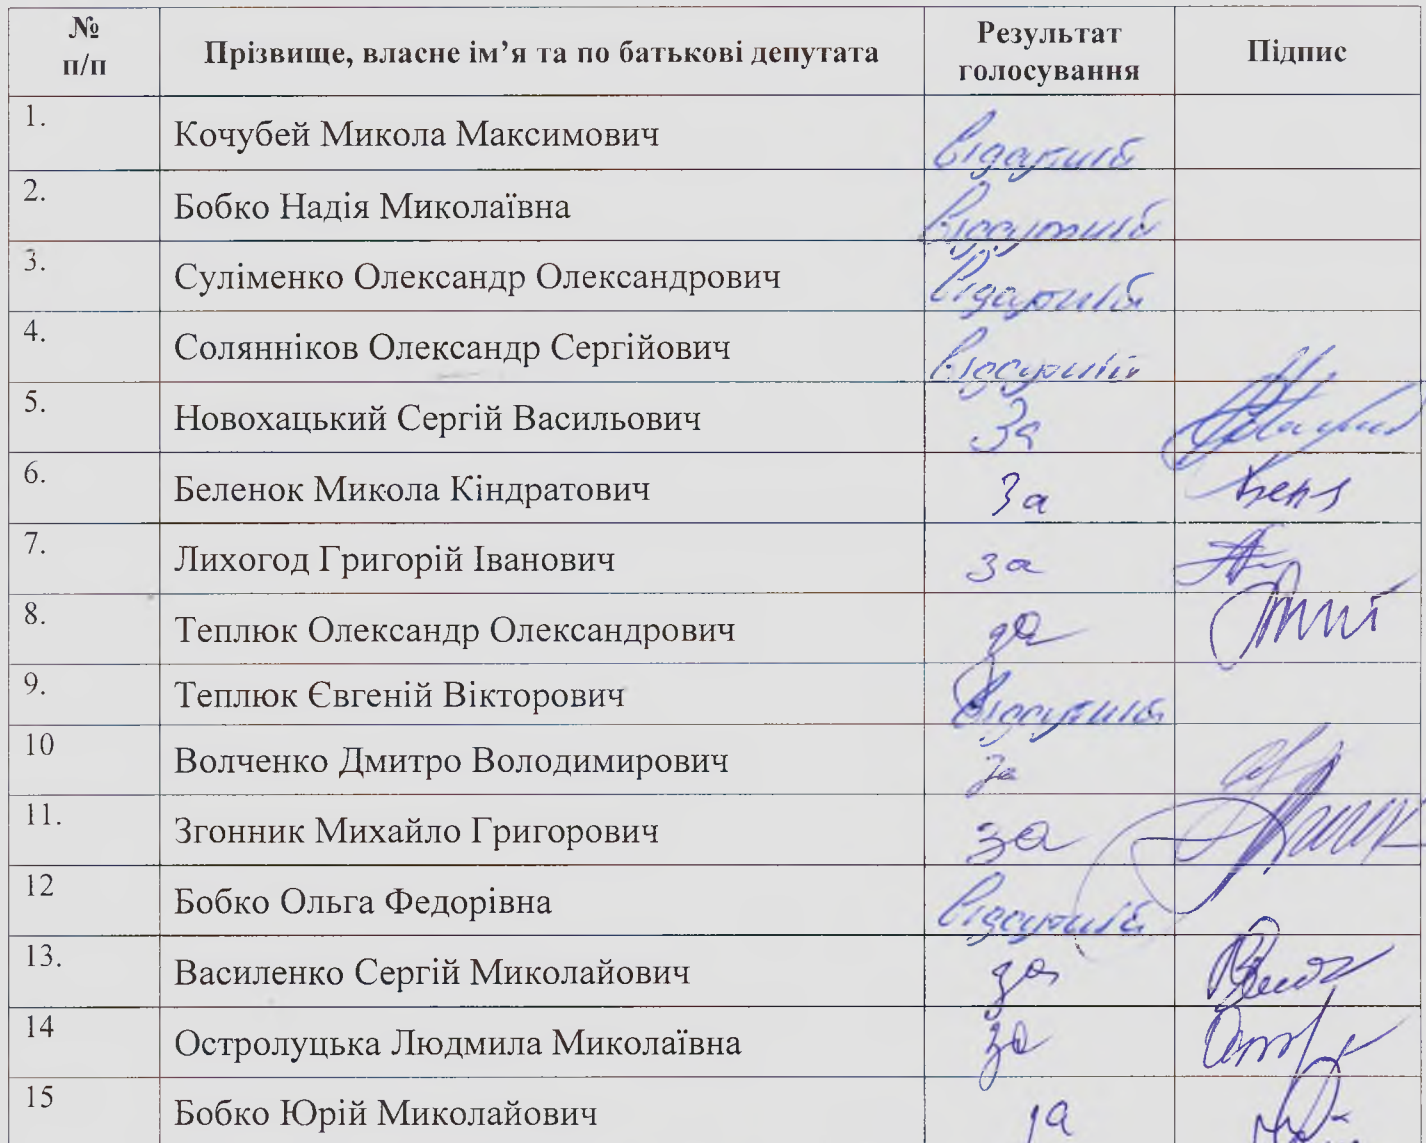 № п/п Прізвище, власне ім’я та по батькові депутата Результат голосування Підпис
1. Кочубей Микола Максимович відсутній
2. Бобко Надія Миколаївна відсутній
3. Суліменко Олександр Олександрович відсутній
4. Солянніков Олександр Сергійович відсутній
5. Новохацький Сергій Васильович За
6. Беленок Микола Кіндратович За
7. Лихогод Григорій Іванович за
8. Теплюк Олександр Олександрович за
9. Теплюк Євгеній Вікторович Відсутній
10 Волченко Дмитро Володимирович За
11. Згонник Михайло Григорович за
12 Бобко Ольга Федорівна Відсутній
13. Василенко Сергій Миколайович за
14 Остролуцька Людмила Миколаївна за
15 Бобко Юрій Миколайович за